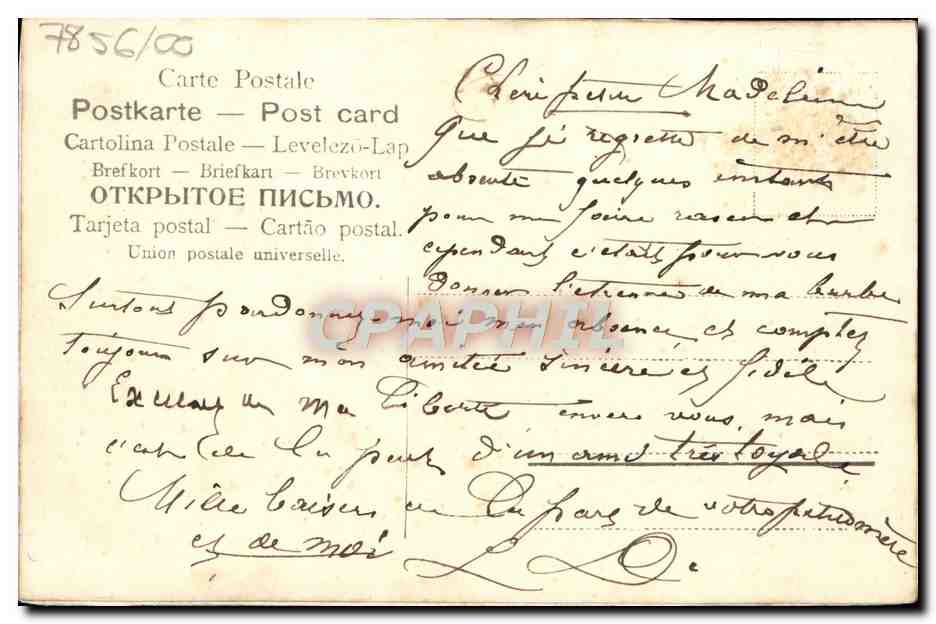 7856/00
Carte Postale
Postkarte — Post card
Cartolina Postale — Levelezö-Lap
Brefkort — Briefkart — Brevkort
ОТКРЫТОЕ ПИСЬМО.
Tarjeta postal — Cartão postal.
Union postale universelle.
Cheri petite Madeleine
Que je regrette de m'être
absenté quelques instants
pour me faire raser et
cependant c'était pour vous
donner l'etrenne de ma barbe
Surtout pardonnez moi mon absence et comptez
toujours sur mon amitié sincère et fidèle
Excusez ma Liberté envers vous, mais
c'est de la part d'un ami très loyale
Mille baisers de la part de votre petite mère
et de moi
L D
CPAPHIL